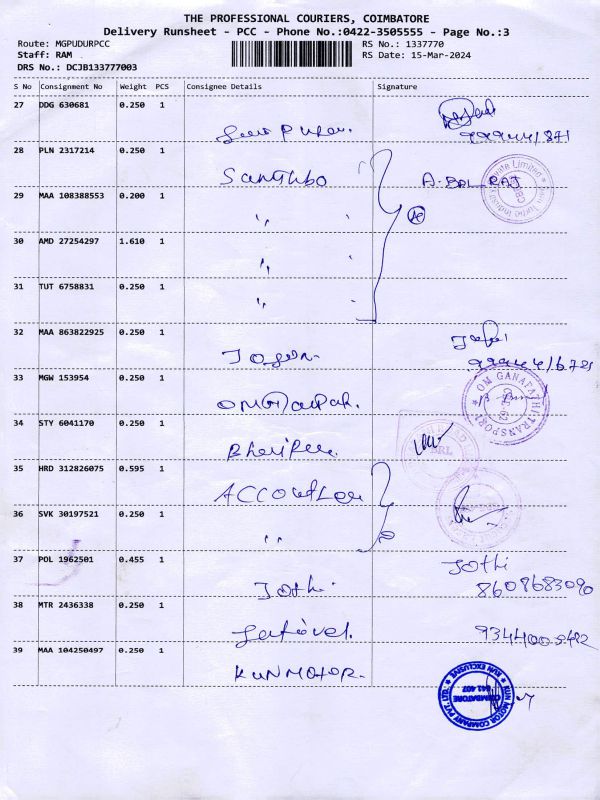 THE PROFESSIONAL COURIERS, COIMBATORE
Delivery Runsheet - PCC - Phone No.:0422-3505555 - Page No.:3
Route: MGPUDURPCC
Staff: RAM
DRS No.: DCJB133777003
RS No.: 1337770
RS Date: 15-Mar-2024
S No Consignment No Weight PCS Consignee Details Signature
27 DDG 630681 0.250 1
28 PLN 2317214 0.250 1 A. BALRAJ
29 MAA 108388553 0.200 1 " "
30 AMD 27254297 1.610 1 " "
31 TUT 6758831 0.250 1 " "
32 MAA 863822925 0.250 1
33 MGW 153954 0.250 1
OM GANAPATHI TRANSPORT
34 STY 6041170 0.250 1
35 HRD 312826075 0.595 1
36 SVK 30197521 0.250 1 " "
37 POL 1962501 0.455 1 Jothi Jothi
8608683090
38 MTR 2436338 0.250 1
39 MAA 104250497 0.250 1 KUN MOTOR
KUN MOTOR COMPANY PVT. LTD. KUN EXCLUSIVE
COIMBATORE
641 407